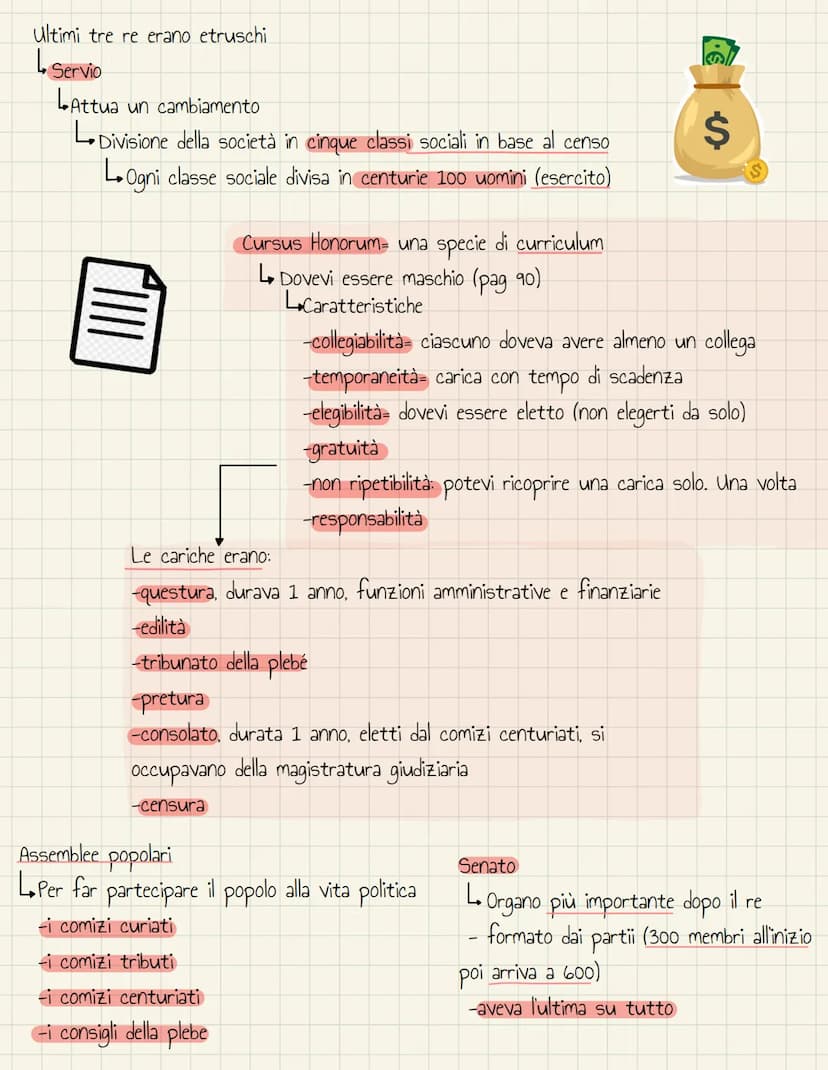 Ultimi tre re erano etruschi
Servio
Attua un cambiamento
Divisione della società in cinque classi sociali in base al censo
Ogni classe sociale divisa in centurie 100 uomini (esercito)
$
$
Cursus Honorum= una specie di curriculum
Dovevi essere maschio (pag 90)
Caratteristiche
-collegiabilità= ciascuno doveva avere almeno un collega
-temporaneità= carica con tempo di scadenza
-elegibilità= dovevi essere eletto (non elegerti da solo)
-gratuità
-non ripetibilità: potevi ricoprire una carica solo. Una volta
-responsabilità
Le cariche erano:
-questura, durava 1 anno, funzioni amministrative e finanziarie
-edilità
-tribunato della plebé
-pretura
-consolato, durata 1 anno, eletti dal comizi centuriati, si
occupavano della magistratura giudiziaria
-censura
Assemblee popolari
Per far partecipare il popolo alla vita politica
-i comizi curiati
-i comizi tributi
-i comizi centuriati
-i consigli della plebe
Senato
Organo più importante dopo il re
- formato dai partii (300 membri all'inizio
poi arriva a 600)
-aveva l'ultima su tutto